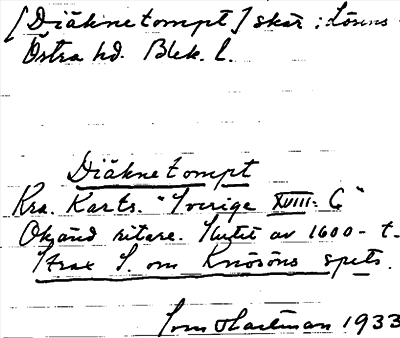 [Diäknetompt] skär : Lösens
Östra hd. Blek. l.
Diäknetompt
Kra. Karts. "Sverige XVIII: 6"
Okänd ritare. Slutet av 1600-t.
Strax S. om Knösöns spets.
Hartman 1933